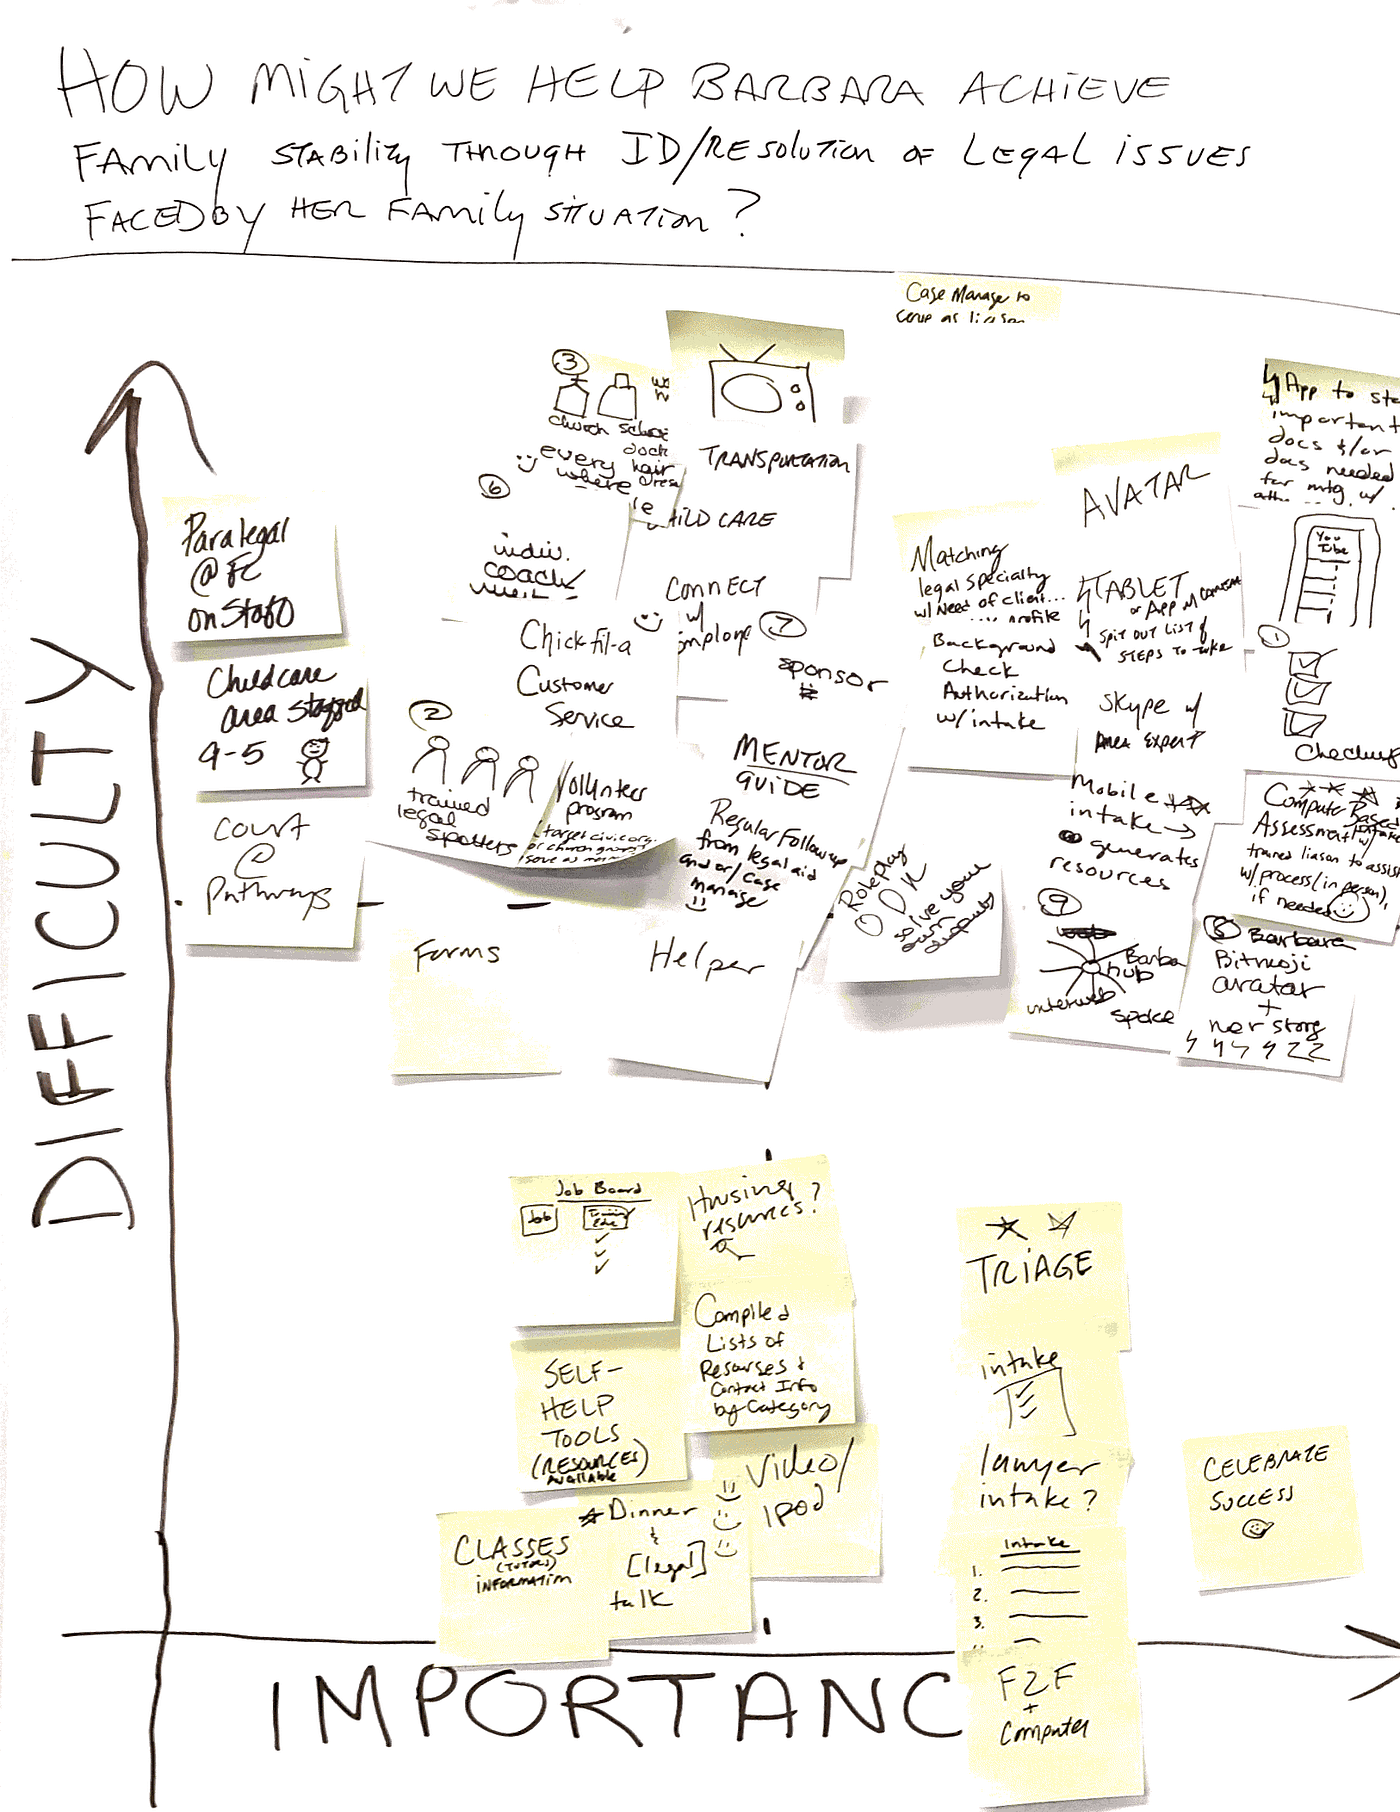 HOW MIGHT WE HELP BARBARA ACHIEVE
FAMILY STABILITY THROUGH ID/RESOLUTION OF LEGAL ISSUES
FACED BY HER FAMILY SITUATION?
Case Manager to
serve as liason
DIFFICULTY
Paralegal
@ FC
on Staff
Childcare
area staffed
9-5
Court
@
Pathways
3
church school
every hair
where
6
indiv.
coach
2
trained
legal
spotters
Chick fil-a
Customer
Service
Volunteer
program
(target civic org.
or church group
Forms
TRANSPORTATION
CHILD CARE
CONNECT
w/
Employe
7
sponsor
MENTOR
GUIDE
Regular Followup
from legal aid
and/or case
manage
Helper
Roleplay
solve your
own
disputes
Matching
legal specialty
w/ Need of client...
profile
Background
Check
Authorization
w/ intake
AVATAR
TABLET
or App w
SPIT OUT LIST of
STEPS TO take
SKYPE w/
AREA EXPERT
Mobile
intake →
generates
resources
9
Barba
hub
interweb
spoke
App to sto
important
docs &/or
docs needed
for mtg. w/
You
Tube
1
Checklist
Computer Based
Assessment w/ intake
trained liason to assist
w/ process (in person),
if needed
8 Barbara
Bitmoji
avatar
+
her story
Job Board
Job
Training
✓
✓
✓
Housing?
resources?
SELF-
HELP
TOOLS
(RESOURCES)
AVAILABLE
Compiled
Lists of
Resourses +
Contact Info
by Category
Video/
ipod
CLASSES
(TUTOR)
INFORMATION
Dinner
&
[legal]
talk
TRIAGE
intake
lawyer
intake?
Intake
1.
2.
3.
F2F
+
Computer
CELEBRATE
SUCCESS
IMPORTANC